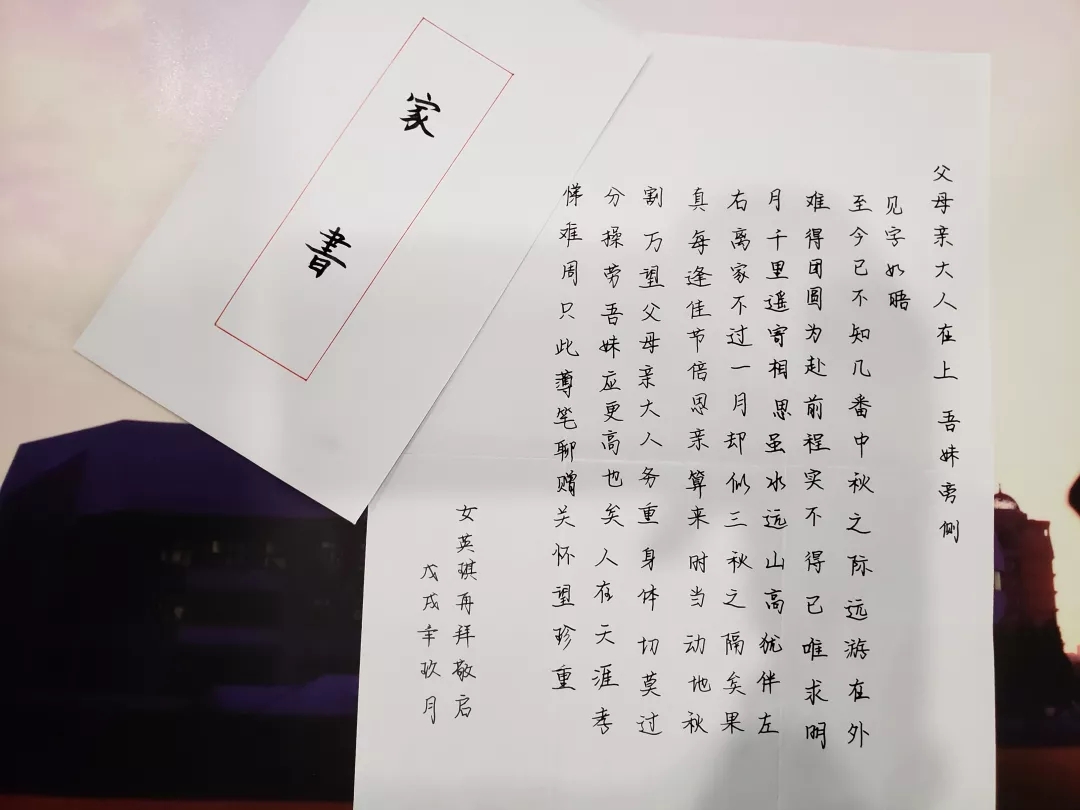 家書
父母亲大人在上 吾妹旁侧
见字如晤
至今已不知几番中秋之际远游在外
难得团圆为赴前程实不得已唯求明
月千里遥寄相思虽水远山高犹伴左
右离家不过一月却似三秋之隔矣果
真每逢佳节倍思亲算来时当动地秋
割万望父母亲大人务重身体切莫过
分操劳吾妹应更高也矣人在天涯孝
悌难周只此薄笔聊赠关怀望珍重
女英琪再拜敬启
戊戌年玖月